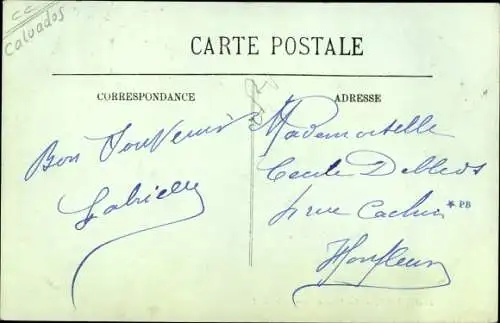 cc
Calvados
CARTE POSTALE
CORRESPONDANCE
ADRESSE
Bon Souvenir
Gabrielle
Mademoiselle
Cécile
rue Cachin
* PB
Honfleur